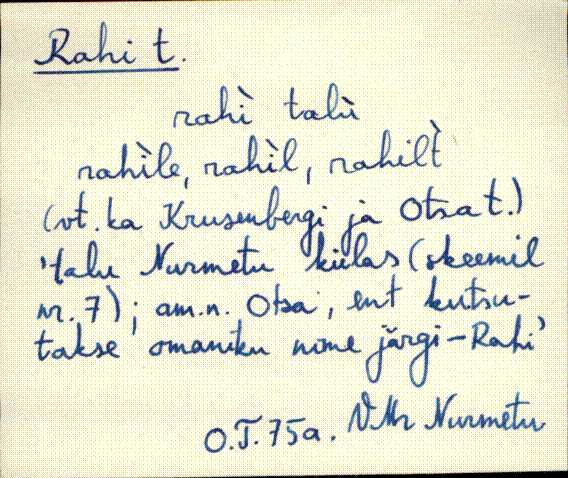 Rahi t.
rahì talù
rahìle, rahìl, rahilt̀
(vt. ka Krusenbergi ja Otsa t.)
'talu Nurmetu külas (skeemil
nr. 7); am.n. Otsa, ent kutsu-
takse omaniku nime järgi – Rahi'
O.T. 75a. VMr Nurmetu